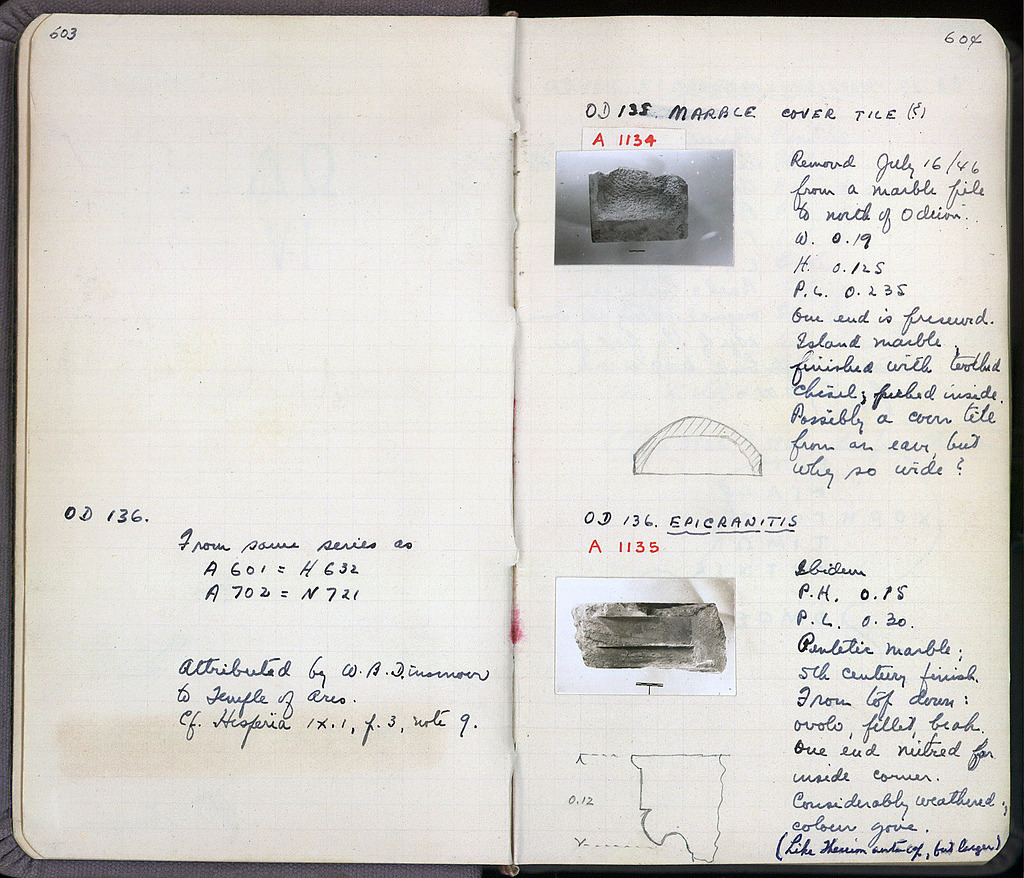 603
OD 136.
From same series as
A 601 = H 632
A 702 = N 721
Attributed by W.B.Dinsmoor
to Temple of Ares.
Cf. Hesperia IX.1, p. 3, note 9.
604
OD 135. MARBLE COVER TILE (?)
A 1134
Removed July 16/46
from a marble pile
to north of Odeion.
W. 0.19
H. 0.125
P.L. 0.235
One end is preserved.
Island marble,
finished with toothed
chisel; picked inside.
Possibly a cover tile
from an eave, but
why so wide?
OD 136. EPICRANITIS
A 1135
Ibidem
P.H. 0.15
P.L. 0.30.
Pentelic marble;
5th century finish.
From top down:
ovolo, fillet, beak.
One end mitred for
inside corner.
Considerably weathered;
colour gone.
(Like Theseion anta cap, but larger)
0.12